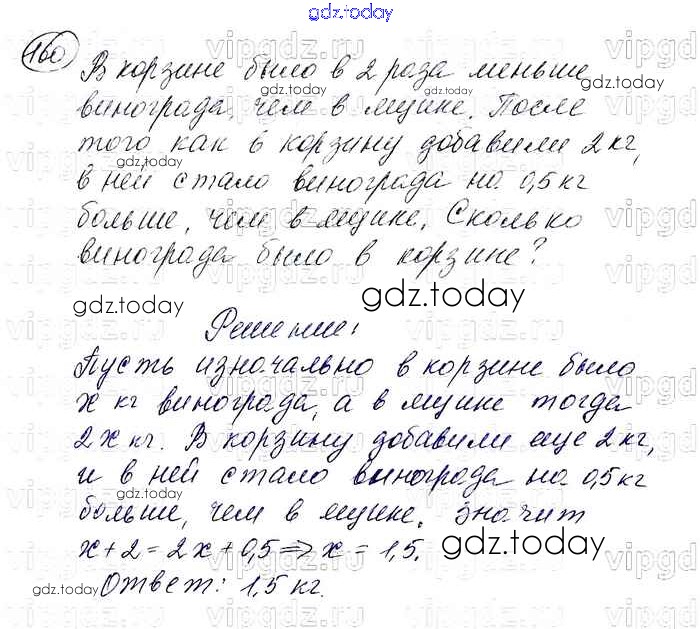 gdz.today
160
В корзине было в 2 раза меньше
винограда, чем в ящике. После
того как в корзину добавили 2 кг,
в ней стало винограда на 0,5 кг
больше, чем в ящике. Сколько
винограда было в корзине?
gdz.today
gdz.today
gdz.today
gdz.today
gdz.today
Решение:
Пусть изначально в корзине было
x кг винограда, а в ящике тогда
2x кг. В корзину добавили еще 2 кг,
и в ней стало винограда на 0,5 кг
больше, чем в ящике. Значит
x + 2 = 2x + 0,5 ⇒ x = 1,5.
Ответ: 1,5 кг.
gdz.today
gdz.today
gdz.today